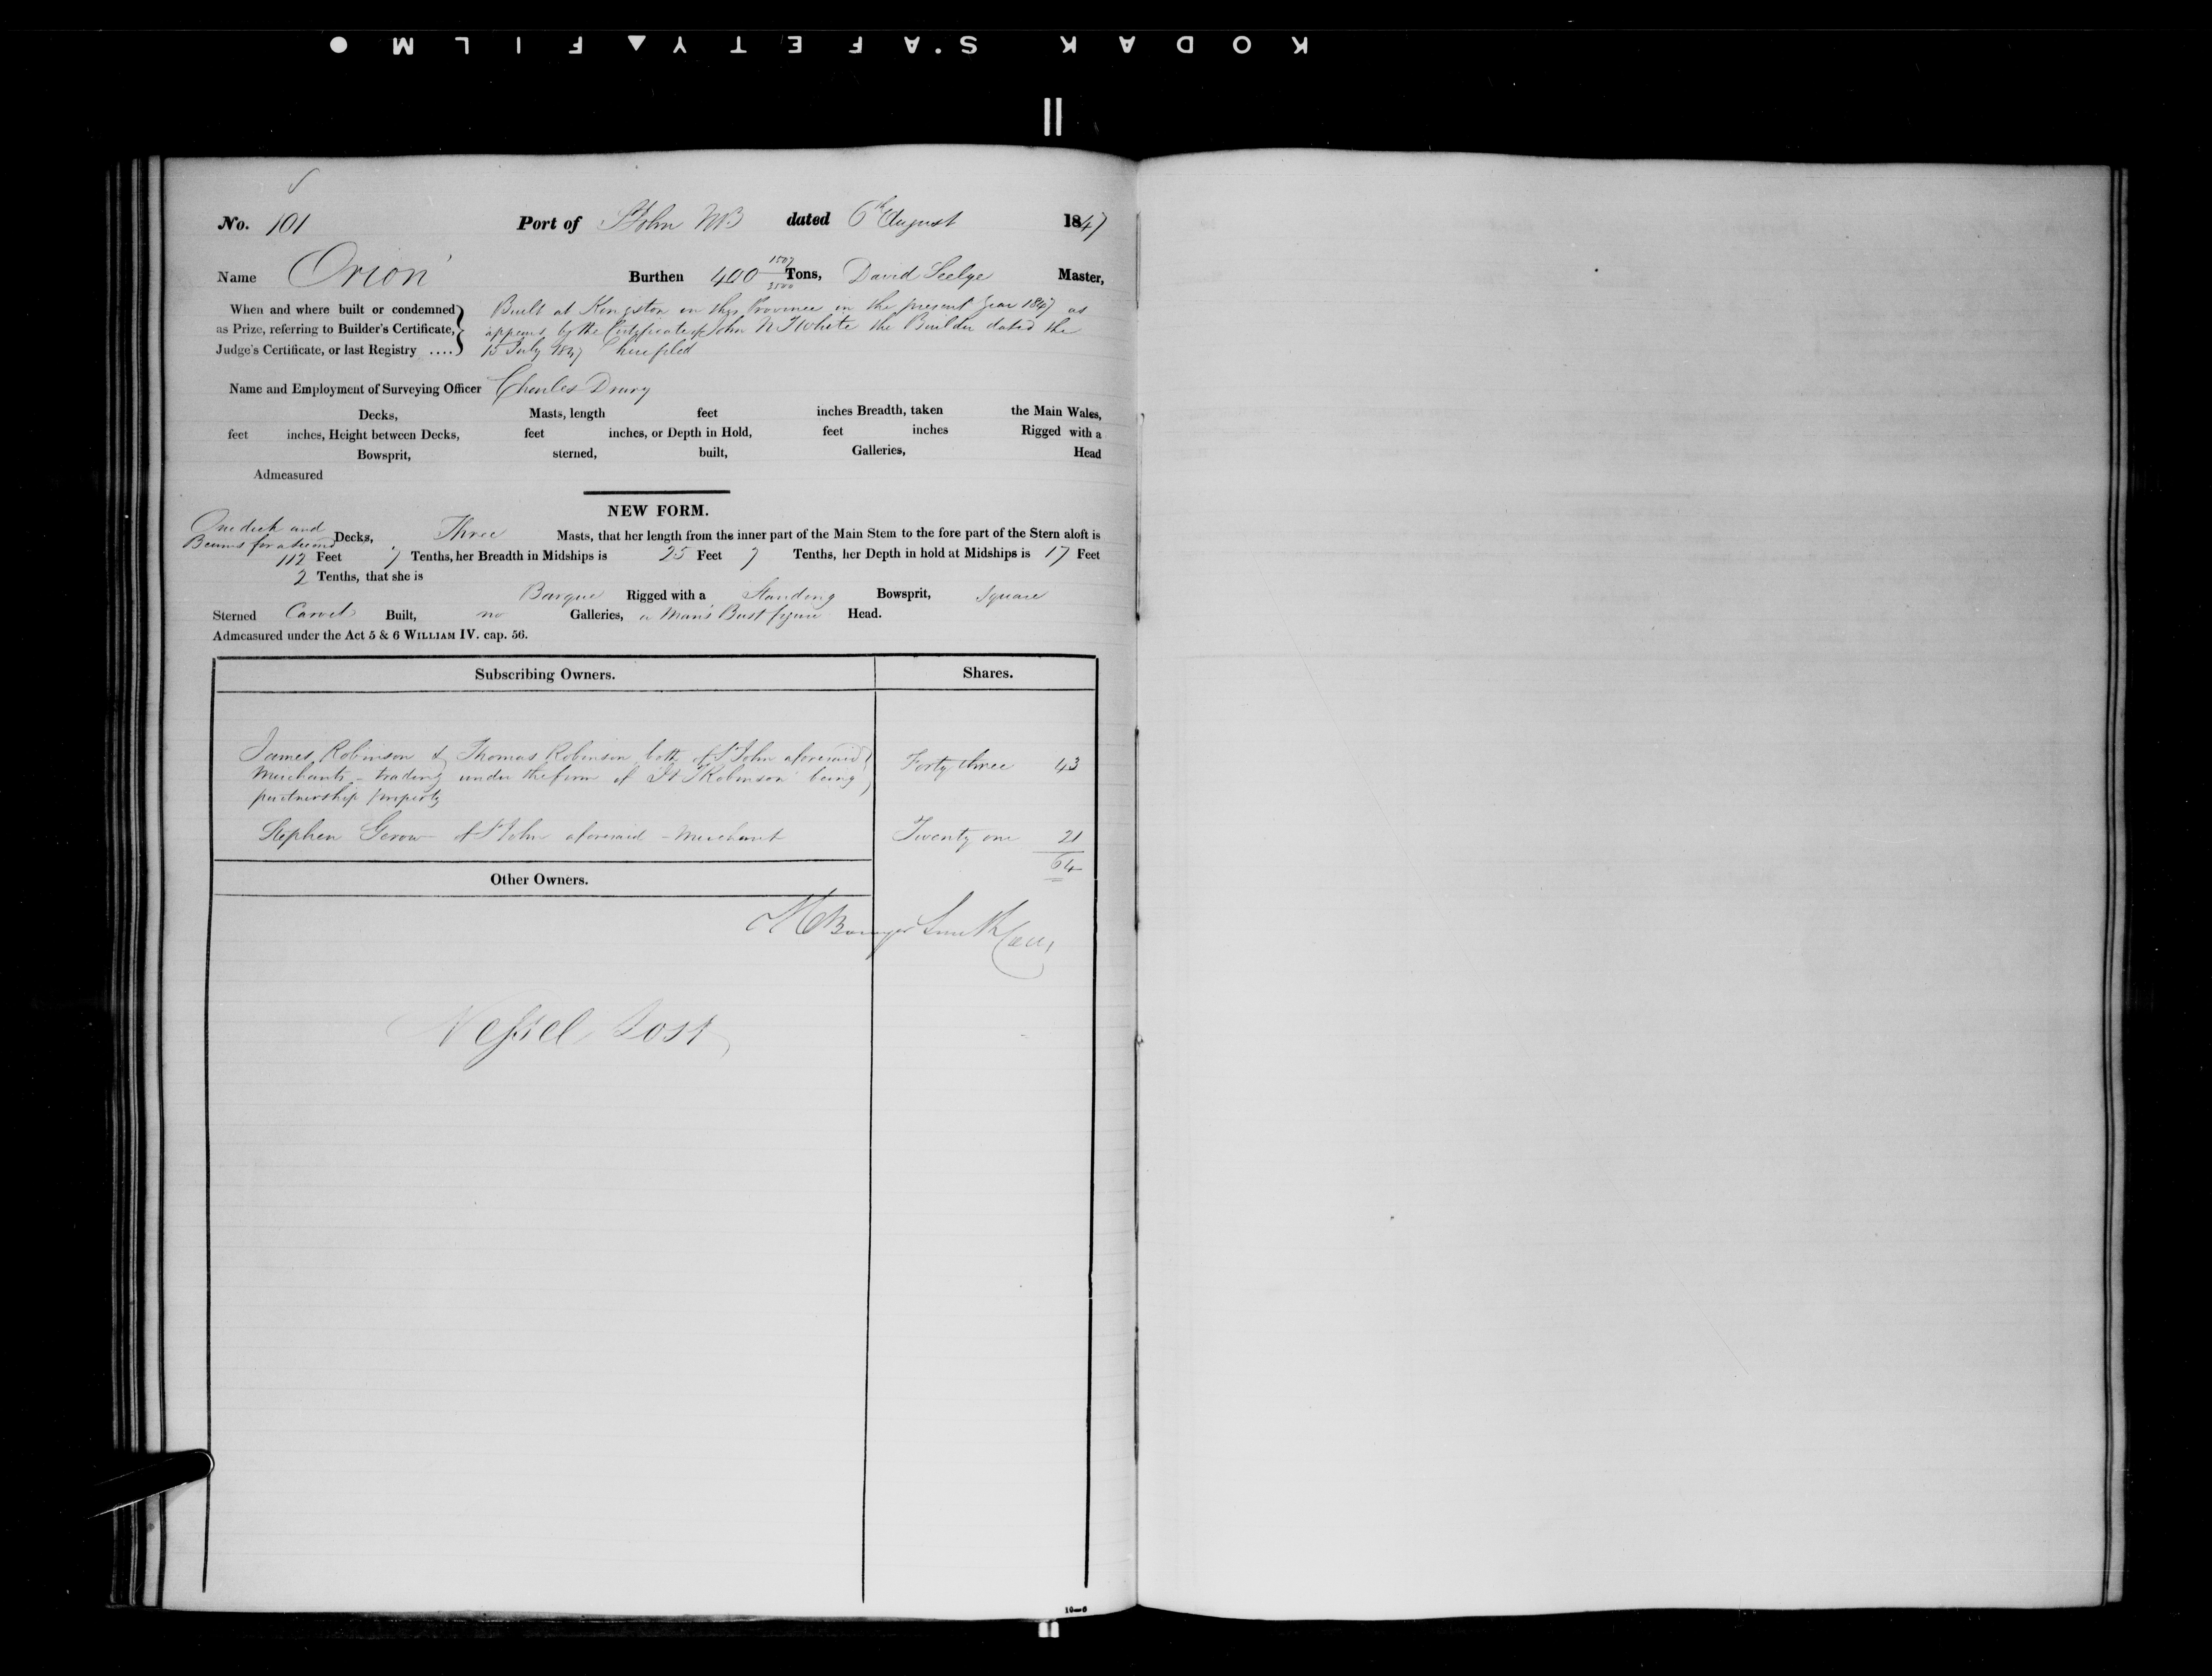 KODAK S'AFETY ▲ FILM ●
No. 101 Port of St John NB dated 6th August 1847
Name Orion Burthen 400 1507/3500 Tons, David Seelye Master,
When and where built or condemned as Prize, referring to Builder's Certificate, Judge's Certificate, or last Registry ....}
Built at Kingston in this Province in the present year 1847 as
appears by the Certificate of John N White the Builder dated the
15 July 1847 here filed
Name and Employment of Surveying Officer Charles Drury
Decks, Masts, length feet inches Breadth, taken the Main Wales,
feet inches, Height between Decks, feet inches, or Depth in Hold, feet inches Rigged with a
Bowsprit, sterned, built, Galleries, Head
Admeasured
NEW FORM.
One deck and
Beams for a second Decks, Three Masts, that her length from the inner part of the Main Stem to the fore part of the Stern aloft is
112 Feet 7 Tenths, her Breadth in Midships is 25 Feet 7 Tenths, her Depth in hold at Midships is 17 Feet
2 Tenths, that she is
Barque Rigged with a Standing Bowsprit, Square
Sterned Carvel Built, no Galleries, a Man's Bust figure Head.
Admeasured under the Act 5 & 6 WILLIAM IV. cap. 56.
Subscribing Owners. Shares.
James Robinson & Thomas Robinson both of St John aforesaid
Merchants - trading under the firm of J & T Robinson being Forty three 43
partnership property
Stephen Gerow of St John aforesaid - Merchant Twenty one 21
64
Other Owners.
Bowyer Smith
Vessel Lost
10—6